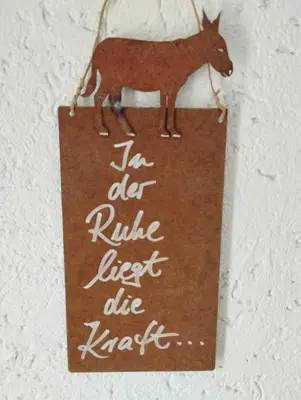 In
der
Ruhe
liegt
die
Kraft...